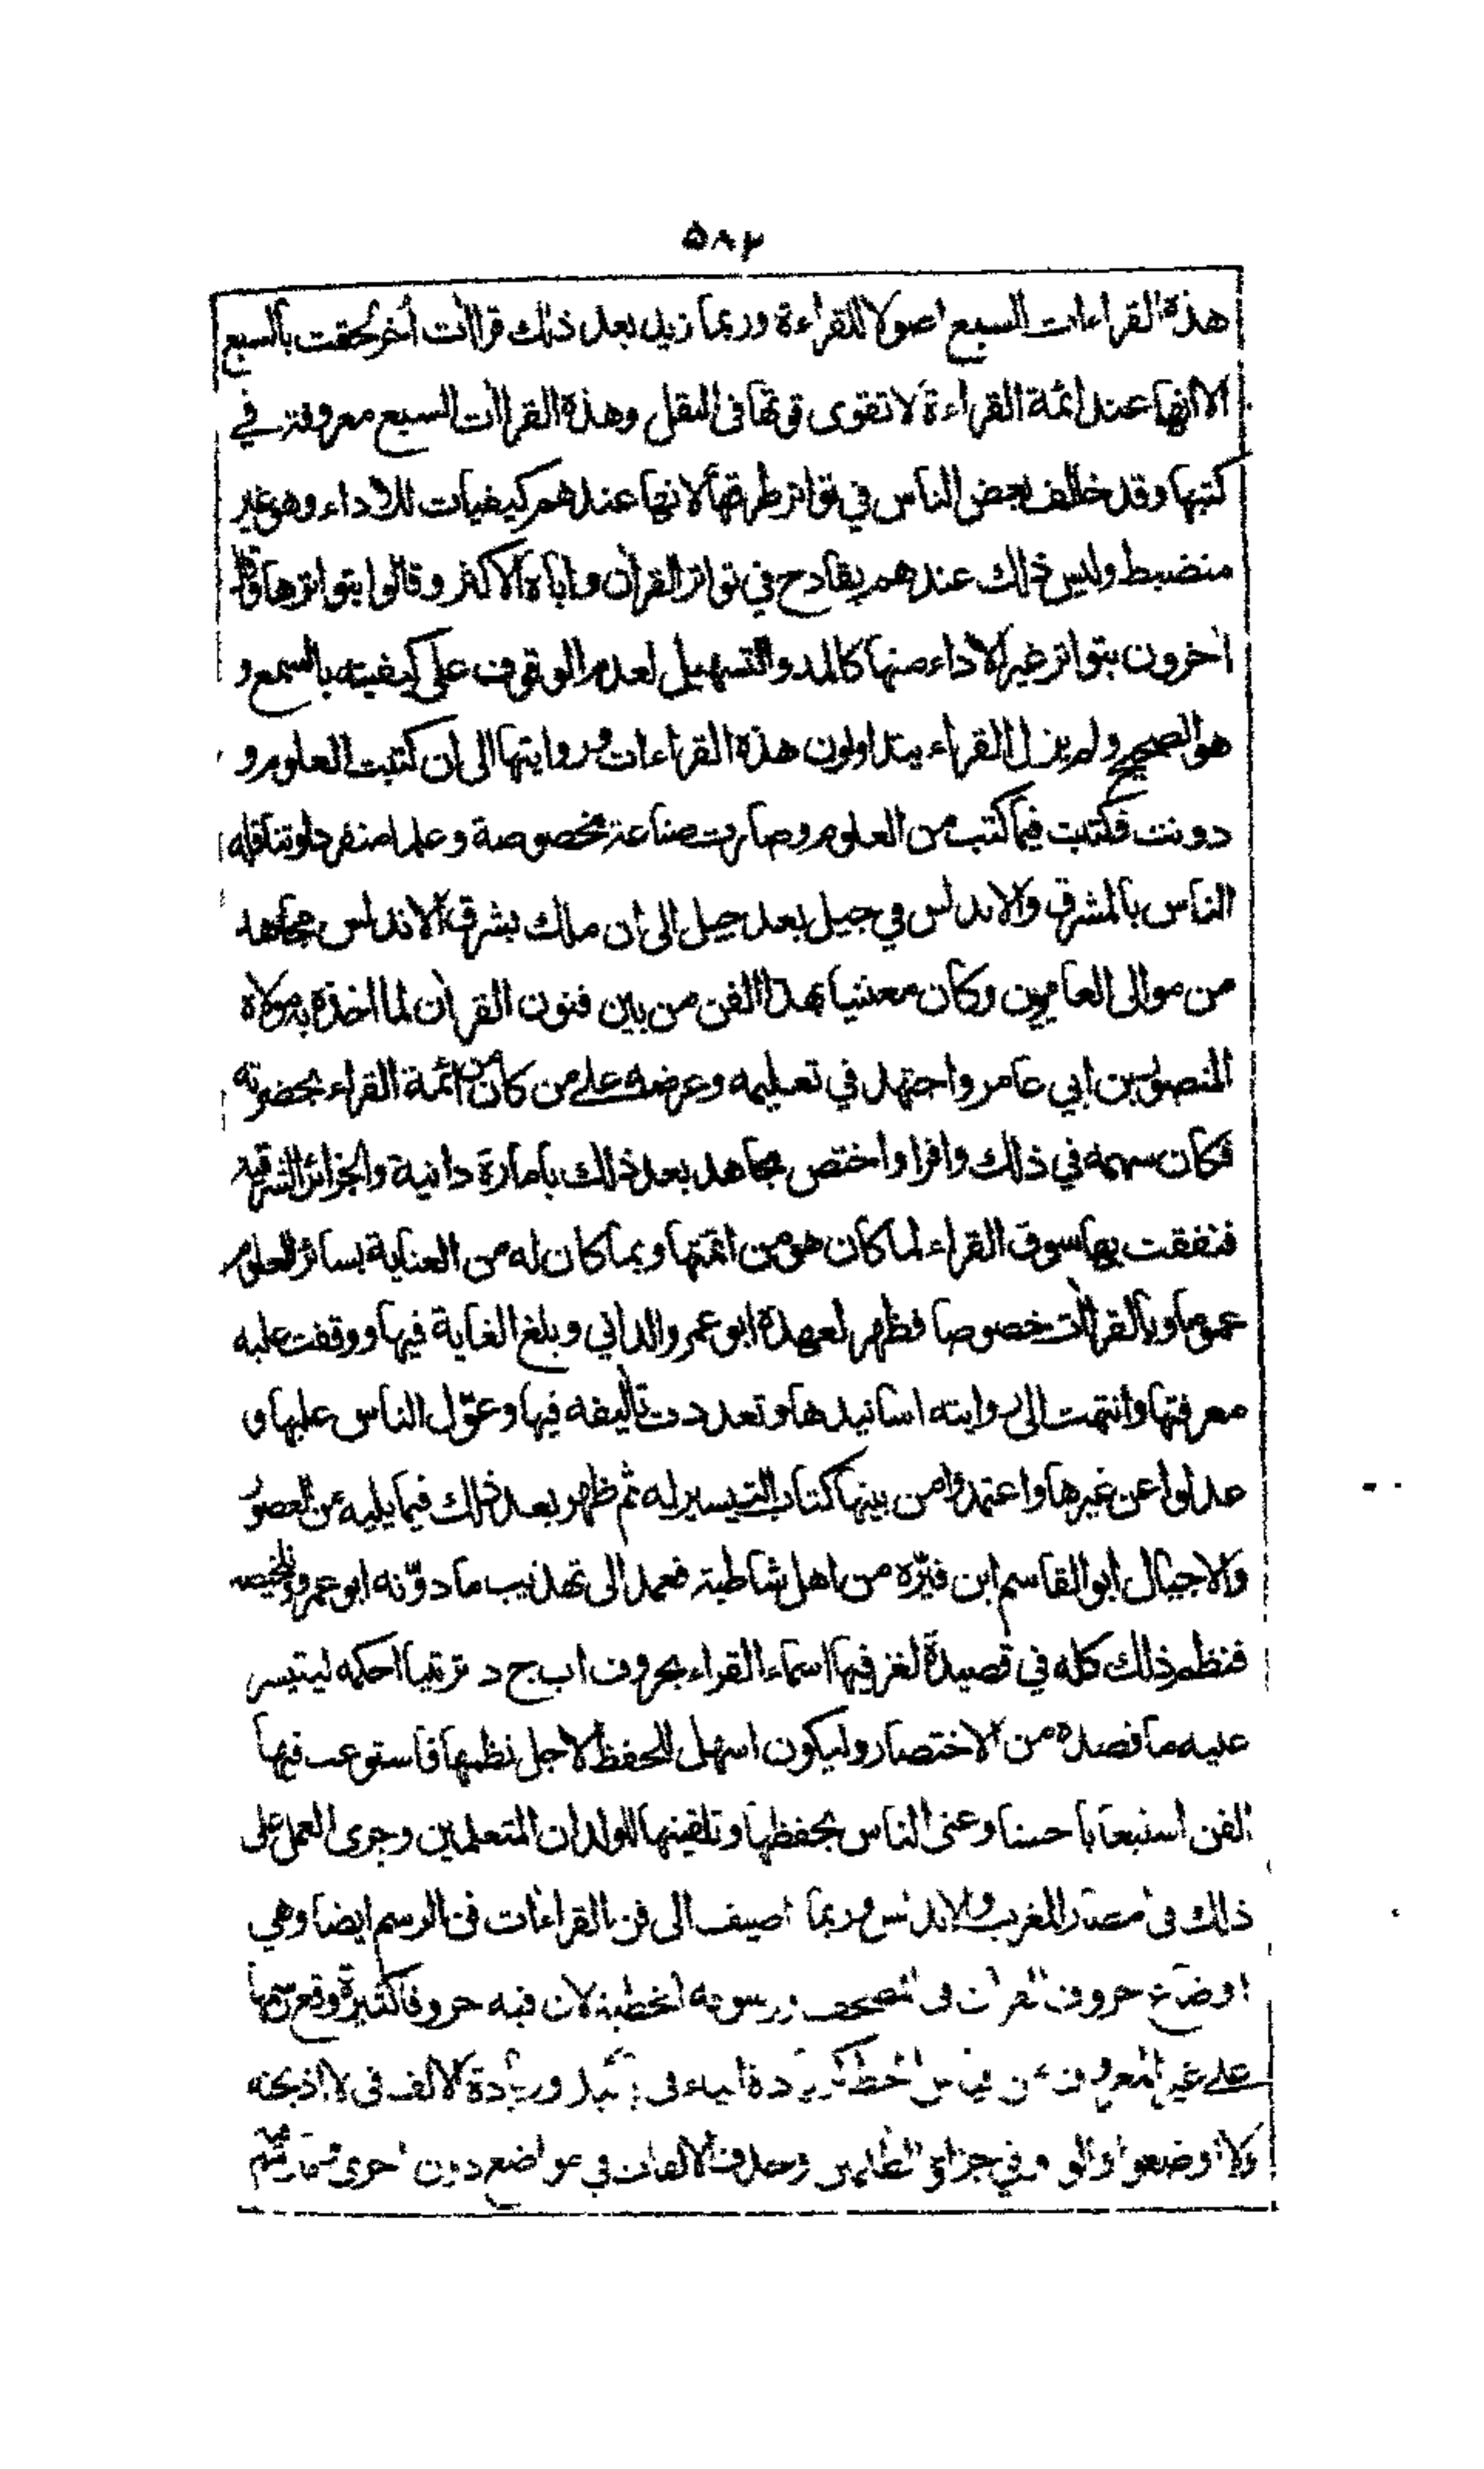 ۵۸۲
هذه القراءات السبع اصولا للقراءة وربما زيد بعد ذلك قراآت أخر لحقت بالسبع
الا انها عند ائمة القراءة لا تقوى قوتها فى النقل وهذه القراآت السبع معروفة في
كتبها وقد خالف بعض الناس في تواتر طرقها لانها عندهم كيفيات للاداء وهو غير
منضبط وليس ذلك عندهم بقادح في تواتر القرآن واباه الاكثر وقالوا بتواترها وقال
آخرون بتواتر غير الاداء منها كالمد والتسهيل لعدم الوقوف على كيفيته بالسمع و
هو الصحيح ولم يزل القراء يتداولون هذه القراءات وروايتها الى ان كتبت العلوم و
دونت فكتبت فيما كتب من العلوم وصارت صناعة مخصوصة وعلما منفردا وتناقله
الناس بالمشرق والاندلس في جيل بعد جيل الى ان ملك بشرق الاندلس مجاهد
من موالى العامريين وكان معتنيا بهذا الفن من بين فنون القرآن لما اخذه به مولاه
المنصور بن ابي عامر واجتهد في تعليمه وعرضه على من كان من ائمة القراء بحضرته
فكان سهمه في ذلك وافرا واختص مجاهد بعد ذلك بامارة دانية والجزائر الشرقية
فنفقت بها سوق القراء لما كان هو من ائمتها وبما كان له من العناية بسائر العلوم
عموما وبالقراآت خصوصا فظهر لعهده ابو عمرو الداني وبلغ الغاية فيها ووقفت عليه
معرفتها وانتهت الى روايته اسانيدها وتعددت تآليفه فيها وعوّل الناس عليها و
عدلوا عن غيرها واعتمدوا من بينها كتاب التيسير له ثم ظهر بعد ذلك فيما يليه من العصور
والاجيال ابو القاسم ابن فيّره من اهل شاطبة فعمد الى تهذيب ما دوّنه ابو عمرو وتلخيصه
فنظم ذلك كله في قصيدة لغز فيها اسماء القراء بحروف اب ج د ترتيبا احكمه ليتيسر
عليه ما قصده من الاختصار وليكون اسهل للحفظ لاجل نظمها فاستوعب فيها
الفن استيعابا حسنا وعنى الناس بحفظها وتلقينها للولدان المتعلمين وجرى العمل على
ذلك فى امصار المغرب والاندلس وربما اضيف الى فن القراءات فن الرسم ايضا وهي
اوضاع حروف القرآن فى المصحف ورسومه الخطية لان فيه حروفا كثيرة وقع رسمها
على غير المعروف من قياس الخط كزيادة الياء فى باييد وزيادة الالف فى لا اذبحنه
ولا اوضعوا والواو في جزاؤ الظالمين وحذف الالفات في مواضع دون اخرى